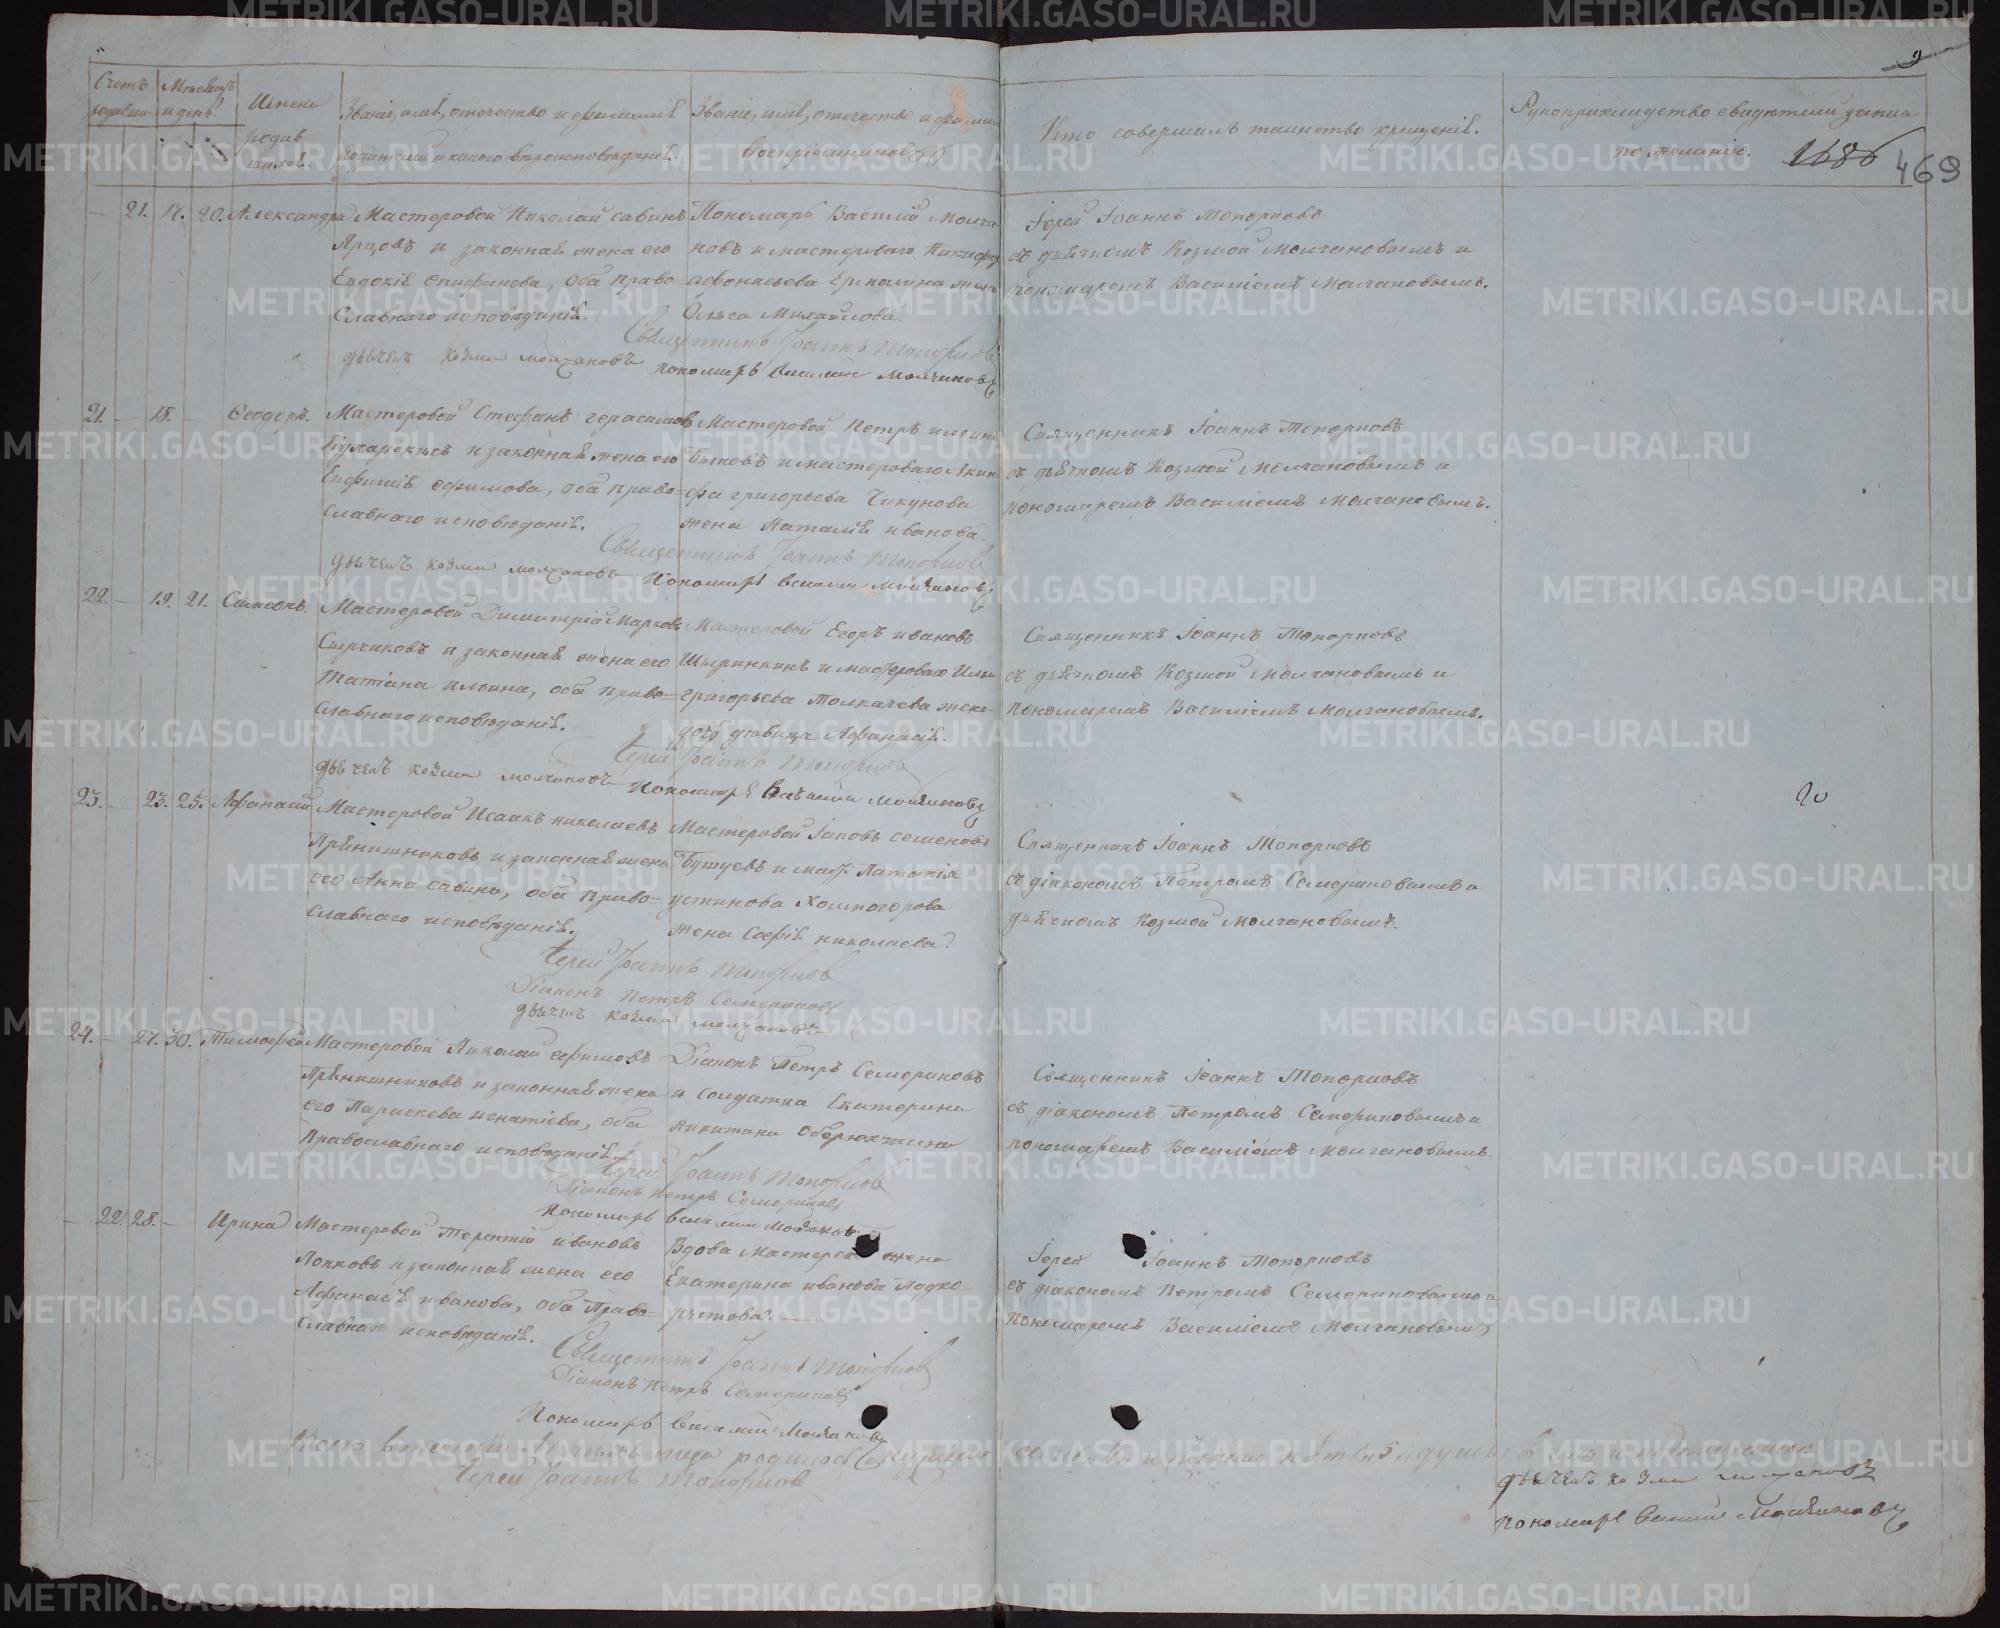 Счетъ родивш.
Мѣсяцъ и день.
Имена родив-
шихся.
Званіе, имя, отчество и фамилія
родителей и какого вѣроисповѣданія.
Званіе, имя, отчество и фамилія
воспріемниковъ
Кто совершалъ таинство крещенія.
Рукоприкладство свидѣтелей записи
по желанію.
1686
469
21. 17. 20. Александра
Мастеровой Николай Савинъ
Ярцовъ и законная жена его
Евдокія Епифанова, оба право-
славнаго исповѣданія.
Пономарь Василій Молча-
новъ и мастероваго
Афонасьева жена
Ольга Михайлова.
Іерей Іоаннъ Топорковъ
съ дьячкомъ Козмой Молчановымъ и
пономаремъ Василіемъ Молчановымъ.
Священникъ Іоаннъ Топорковъ
дьячекъ Козма Молчановъ пономарь Василій Молчановъ
21. 18. Ѳеодоръ.
Мастеровой Стефанъ Герасимовъ
и законная жена его
Ефимова, оба право-
славнаго исповѣданія.
Мастеровой Петръ
Быковъ и мастероваго Акин-
фа Григорьева Чикунова
жена Наталія Иванова.
Священникъ Іоаннъ Топорковъ
съ дьячкомъ Козмой Молчановымъ и
пономаремъ Василіемъ Молчановымъ.
Священникъ Іоаннъ Топорковъ
дьячекъ Козма Молчановъ Пономарь Василій Молчановъ
22. 19. 21. Симеонъ.
Мастеровой Димитрій Марковъ
Сырчиковъ и законная жена его
Татіана Ильина, оба право-
славнаго исповѣданія.
Мастеровой Егоръ Ивановъ
и мастероваго Ильи
Григорьева Толкачева
дочь дѣвица Афанасія.
Священникъ Іоаннъ Топорковъ
съ дьячкомъ Козмой Молчановымъ и
пономаремъ Василіемъ Молчановымъ.
Іерей Іоаннъ Топорковъ
дьячекъ Козма Молчановъ Пономарь Василій Молчановъ
23. 23. 25. Афанасій
Мастеровой Исаакъ Николаевъ
Пряничниковъ и законная жена
его Анна Савина, оба право-
славнаго исповѣданія.
Мастеровой Іаковъ Семеновъ
Бутуевъ и маст.
Устинова Холмогорова
жена Софія Николаева.
Священникъ Іоаннъ Топорковъ
съ діакономъ Петромъ Семериковымъ и
дьячкомъ Козмой Молчановымъ.
Іерей Іоаннъ Топорковъ
Діаконъ Петръ Семериковъ
дьячекъ Козма Молчановъ
24. 27. 30. Тимофей
Мастеровой Николай Ефимовъ
Пряничниковъ и законная жена
его Параскева Игнатіева, оба
Православнаго исповѣданія.
Діаконъ Петръ Семериковъ
и солдатка Екатерина
Никитина Оберюхтина
Священникъ Іоаннъ Топорковъ
съ діакономъ Петромъ Семериковымъ и
пономаремъ Василіемъ Молчановымъ.
Іерей Іоаннъ Топорковъ
Діаконъ Петръ Семериковъ
Пономарь Василій Молчановъ
22. 28. Ирина
Мастеровой Терентій Ивановъ
Попковъ и законная жена его
Афанасія Иванова, оба Право-
славнаго исповѣданія.
Вдова мастерская жена
Екатерина Иванова Подко-
рытова.
Іерей Іоаннъ Топорковъ
съ діакономъ Петромъ Семериковымъ и
пономаремъ Василіемъ Молчановымъ
Священникъ Іоаннъ Топорковъ
Діаконъ Петръ Семериковъ
Пономарь Василій Молчановъ
Всего въ родилось душъ
Іерей Іоаннъ Топорковъ
дьячекъ Козма Молчановъ
пономарь Василій Молчановъ
METRIKI.GASO-URAL.RU